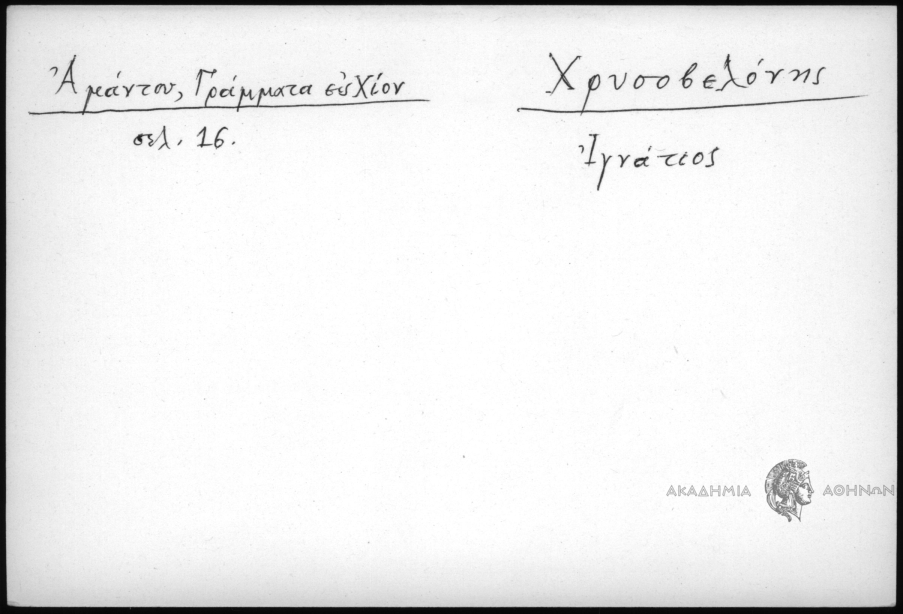 Ἀμάντου, Γράμματα εἰς Χίον
σελ. 16.
Χρυσοβελόνης
Ἰγνάτιος
ΑΚΑΔΗΜΙΑ ΑΘΗΝΩΝ